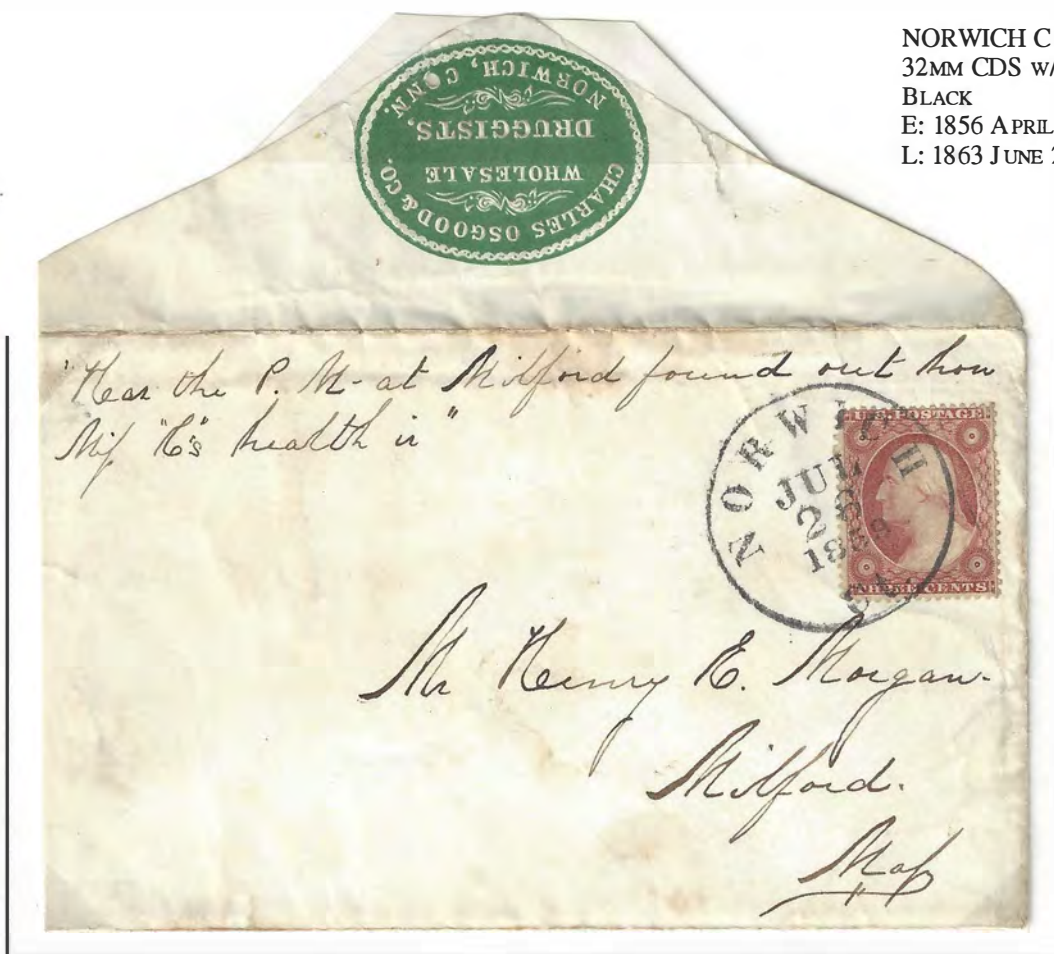 NORWICH C
32MM CDS W/
BLACK
E: 1856 APRIL
L: 1863 JUNE
CHARLES OSGOOD & CO.
WHOLESALE
DRUGGISTS.
NORWICH, CONN.
"Has the P. M- at Milford found out how
Miſs "E's health is"
NORWICH
JUL
28
U.S. POSTAGE
THREE CENTS
Mr Henry E. Morgan.
Milford.
Maſs